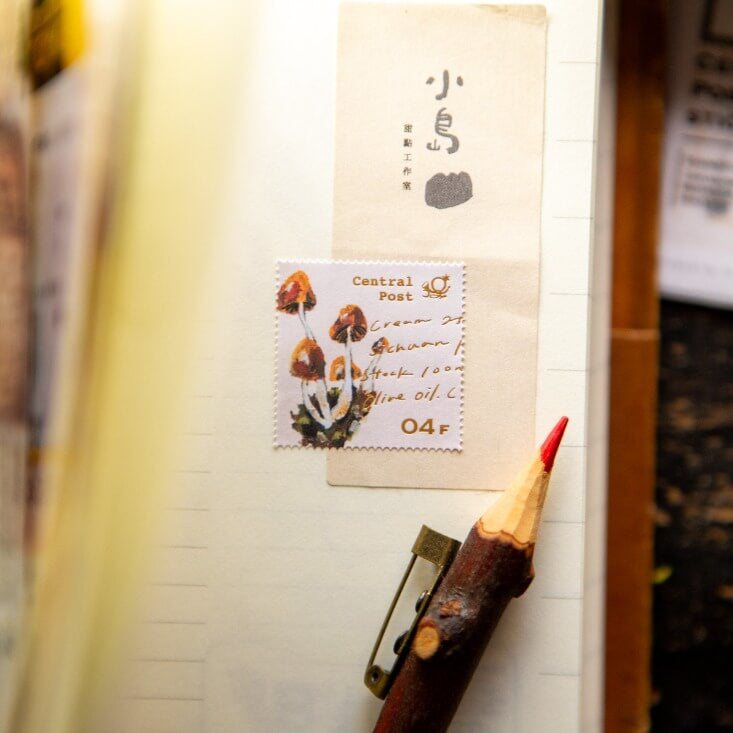 小島
甜點工作室
Central
Post
Cream
Sichuan
stock 100m
olive oil. C
04F